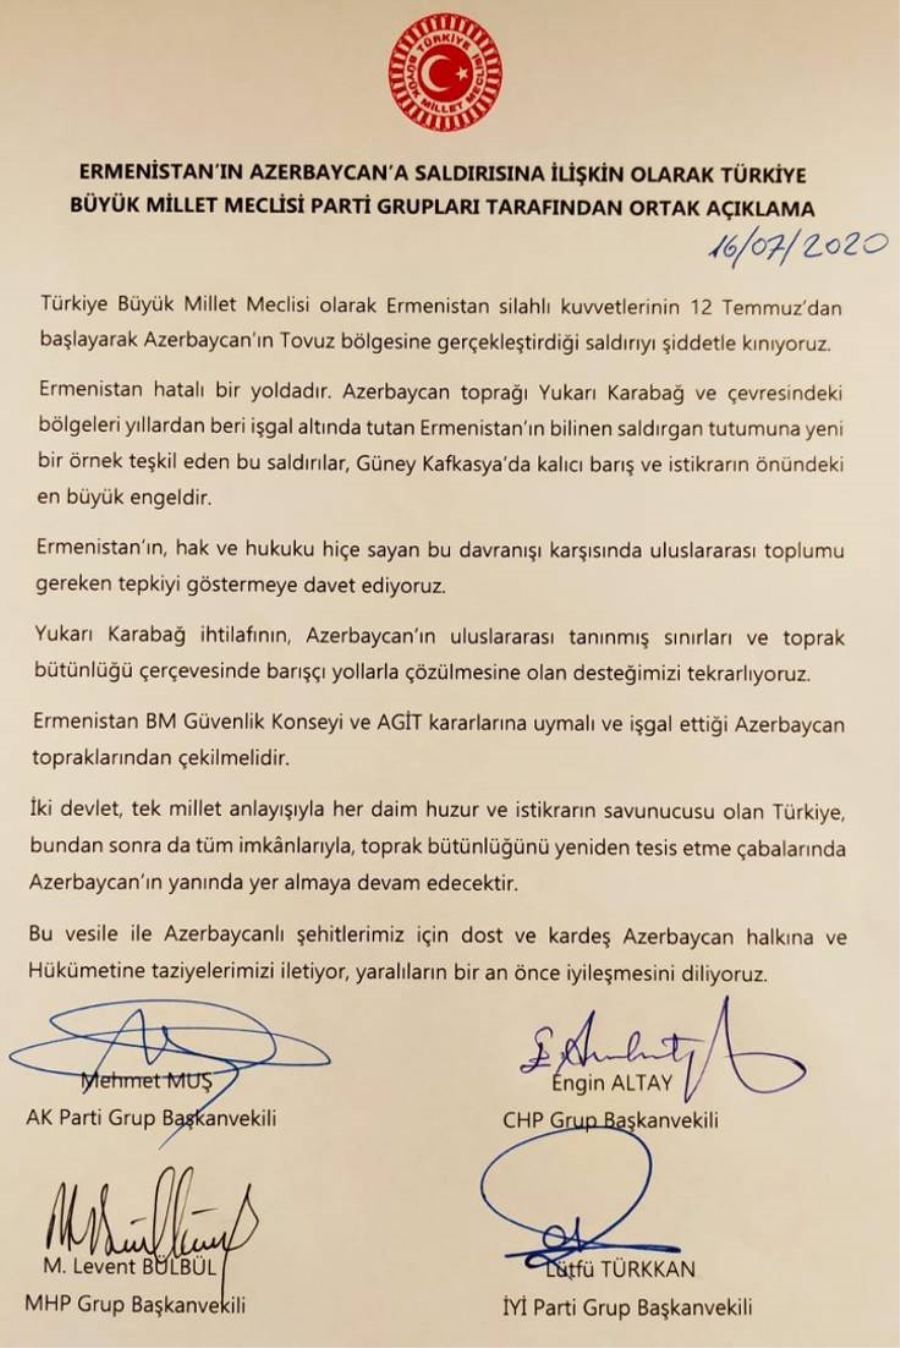 TÜRKİYE BÜYÜK MİLLET MECLİSİ
ERMENİSTAN'IN AZERBAYCAN'A SALDIRISINA İLİŞKİN OLARAK TÜRKİYE
BÜYÜK MİLLET MECLİSİ PARTİ GRUPLARI TARAFINDAN ORTAK AÇIKLAMA
16/07/2020
Türkiye Büyük Millet Meclisi olarak Ermenistan silahlı kuvvetlerinin 12 Temmuz'dan
başlayarak Azerbaycan'ın Tovuz bölgesine gerçekleştirdiği saldırıyı şiddetle kınıyoruz.
Ermenistan hatalı bir yoldadır. Azerbaycan toprağı Yukarı Karabağ ve çevresindeki
bölgeleri yıllardan beri işgal altında tutan Ermenistan'ın bilinen saldırgan tutumuna yeni
bir örnek teşkil eden bu saldırılar, Güney Kafkasya'da kalıcı barış ve istikrarın önündeki
en büyük engeldir.
Ermenistan'ın, hak ve hukuku hiçe sayan bu davranışı karşısında uluslararası toplumu
gereken tepkiyi göstermeye davet ediyoruz.
Yukarı Karabağ ihtilafının, Azerbaycan'ın uluslararası tanınmış sınırları ve toprak
bütünlüğü çerçevesinde barışçı yollarla çözülmesine olan desteğimizi tekrarlıyoruz.
Ermenistan BM Güvenlik Konseyi ve AGİT kararlarına uymalı ve işgal ettiği Azerbaycan
topraklarından çekilmelidir.
İki devlet, tek millet anlayışıyla her daim huzur ve istikrarın savunucusu olan Türkiye,
bundan sonra da tüm imkânlarıyla, toprak bütünlüğünü yeniden tesis etme çabalarında
Azerbaycan'ın yanında yer almaya devam edecektir.
Bu vesile ile Azerbaycanlı şehitlerimiz için dost ve kardeş Azerbaycan halkına ve
Hükümetine taziyelerimizi iletiyor, yaralıların bir an önce iyileşmesini diliyoruz.
Mehmet MUŞ
AK Parti Grup Başkanvekili
Engin ALTAY
CHP Grup Başkanvekili
M. Levent BÜLBÜL
MHP Grup Başkanvekili
Lütfü TÜRKKAN
İYİ Parti Grup Başkanvekili